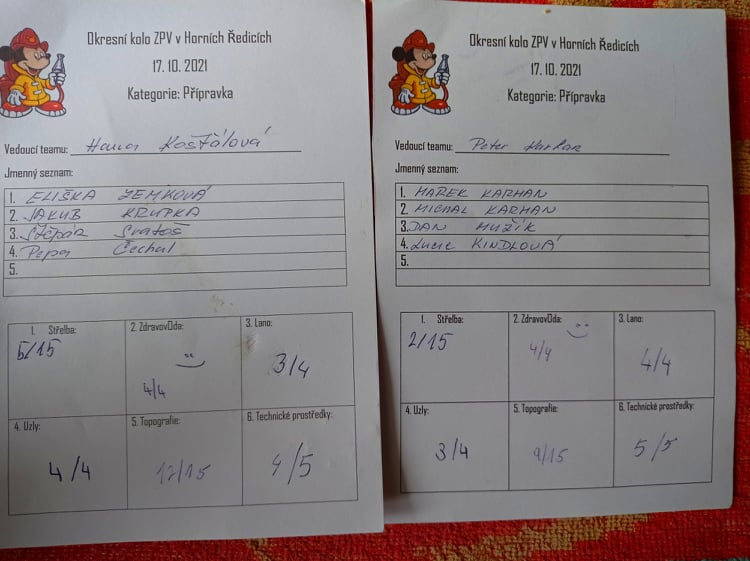 Okresní kolo ZPV v Horních Ředicích
17. 10. 2021
Kategorie: Přípravka
Vedoucí teamu: Hana Košťálová
Jmenný seznam:
1. ELIŠKA ZEMKOVÁ
2. JAKUB KRUPKA
3. Štěpán Svatoš
4. Pepa Čechal
5.
1. Střelba:
5/15
2. Zdravovďda:
4/4
3. Lano:
3/4
4. Uzly:
4/4
5. Topografie:
12/15
6. Technické prostředky:
4/5
Okresní kolo ZPV v Horních Ředicích
17. 10. 2021
Kategorie: Přípravka
Vedoucí teamu: Peter Karhan
Jmenný seznam:
1. MAREK KARHAN
2. MICHAL KARHAN
3. DAN MUŽÍK
4. Lucie KINDLOVÁ
5.
1. Střelba:
2/15
2. Zdravovďda:
4/4
3. Lano:
4/4
4. Uzly:
3/4
5. Topografie:
9/15
6. Technické prostředky:
5/5